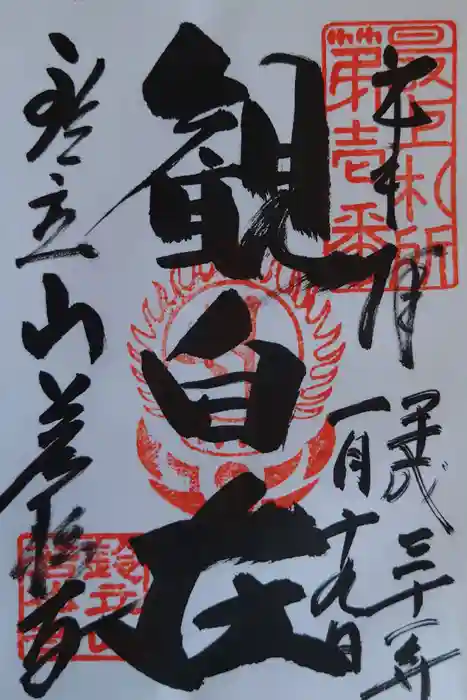 最上札所
第壱番
奉拝
平成三十一年
一月十九日
観自在
鈴立山若松寺